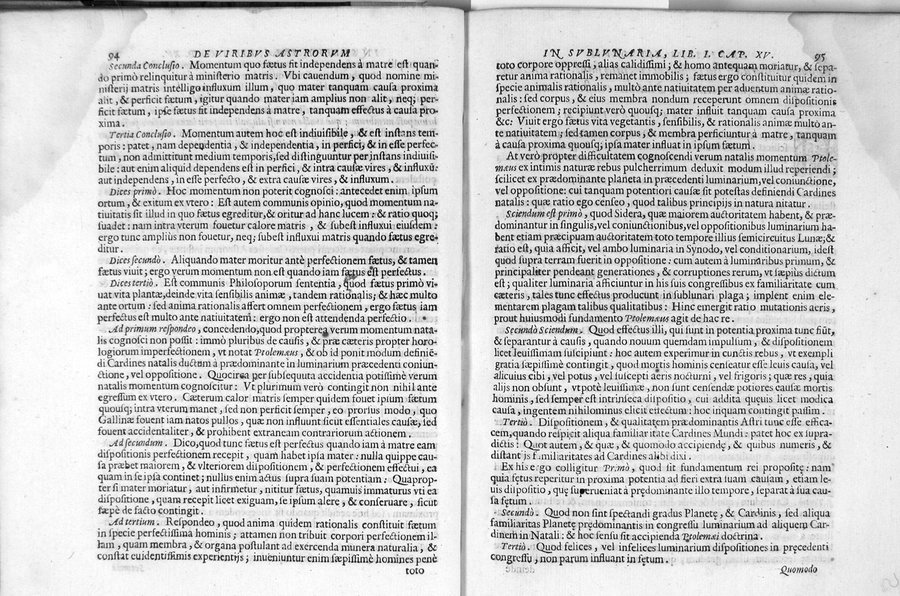 94 DE VIRIBVS ASTRORVM
Secunda Conclusio. Momentum quo fætus fit independens à matre est quan-
do primò relinquitur à ministerio matris. Vbi cauendum, quod nomine mi-
nisterij matris intelligo influxum illum, quo mater tanquam causa proxima
alit, & perficit fætum, igitur quando mater iam amplius non alit, neq; per-
ficit fætum, ipse fætus fit independens à matre, tanquam effectus à causa pro-
xima.
Tertia Conclusio. Momentum autem hoc est indiuisibile, & est instans tem-
poris: patet, nam dependentia, & independentia, in perfici, & in esse perfec-
tum, non admittitunt medium temporis, sed distinguntur per instans indiuisi-
bile: aut enim aliquid dependens est in perfici, & intra causæ vires, & influxũ:
aut independens, in esse perfecto, & extra causæ vires, & influxum.
Dices primò. Hoc momentum non poterit cognosci: antecedet enim ipsum
ortum, & exitum ex vtero: Est autem communis opinio, quod momentum na-
tiuitatis sit illud in quo fætus egreditur, & oritur ad hanc lucem: & ratio quoq;
suadet: nam intra vterum fouetur calore matris, & subest influxui eiusdem:
ergo tunc amplius non fouetur, neq; subest influxui matris quando fætus egre-
ditur.
Dices secundò. Aliquando mater moritur antè perfectionem fætus, & tamen
fætus viuit; ergo verum momentum non est quando iam fætus est perfectus.
Dices tertiò. Est communis Philosoporum sententia, quod fætus primò vi-
uat vita plantæ, deinde vita sensibilis animæ, tandem rationalis; & hæc multo
ante ortum: sed anima rationalis assert omnem perfectionem, ergo fætus iam
perfectus est multo ante natiuitatem: ergo non est attendenda perfectio.
Ad primum respondeo, concedendo, quod propterea verum momentum nata-
lis cognosci non possit: immò pluribus de causis, & præ cæteris propter horo-
logiorum imperfectionem, vt notat Ptolemæus, & ob id ponit modum definiē-
di Cardines natalis ductum à prædominante in luminarium præcedenti coniun-
ctione, vel oppositione. Quocirca per subsequuta accidentia potissimè verum
natalis momentum cognoscitur: Vt plurimum verò contingit non nihil ante
egressum ex vtero. Cæterum calor matris semper quidem fouet ipsum fætum
quousq; intra vterum manet, sed non perficit semper, eo prorsus modo, quo
Gallinæ fouent iam natos pullos, quæ non influunt sicut essentiales causæ, sed
fouent accidentaliter, & prohibent extranеam contrariorum actionem.
Ad secundum. Dico, quod tunc fætus est perfectus quando iam à matre eam
dispositionis perfectionem recepit, quam habet ipsa mater: nulla quippe cau-
sa præbet maiorem, & vlteriorem dispositionem, & perfectionem effectui, ea
quam in se ipsa continet; nullus enim actus supra suam potentiam: Quaprop-
ter si mater moriatur, aut infirmetur, nititur fætus, quamuis immaturus vti ea
dispositione, quam recepit licet exiguam, se ipsum alere, & conseruare, sicut
sæpè de facto contingit.
Ad tertium. Respondeo, quod anima quidem rationalis constituit fætum
in specie perfectissima hominis; attamen non tribuit corpori perfectionem il-
lam, quam membra, & organa postulant ad exercenda munera naturalia, &
constat euidentissimis experientijs; inueniuntur enim sæpissimè homines penè
toto
IN SVBLVNARIA, LIB. I. CAP. XV. 95
toto corpore oppressi, alias calidissimi; & homo antequam moriatur, & sepa-
retur anima rationalis, remanet immobilis; fætus ergo constituitur quidem in
specie animalis rationalis, multò ante natiuitatem per aduentum animæ ratio-
nalis: sed corpus, & eius membra nondum receperunt omnem dispositionis
perfectionem; recipiunt verò quousq; mater influit tanquam causa proxima
&c: Viuit ergo fætus vita vegetantis, sensibilis, & rationalis animæ multò an-
te natiuitatem; sed tamen corpus, & membra perficiuntur à matre, tanquam
à causa proxima quousq; ipsa mater influat in ipsum fætum.
At verò propter difficultatem cognoscendi verum natalis momentum Ptole-
mæus ex intimis naturæ rebus pulcherrimum deduxit modum illud reperiendi;
scilicet ex prædominante planeta in præcedenti luminarium, vel coniunctione,
vel oppositione: cui tanquam potentiori causæ sit potestas definiendi Cardines
natalis: quæ ratio ego censeo, quod talibus principijs in natura nitatur.
Sciendum est primò, quod Sidera, quæ maiorem auctoritatem habent, & præ-
dominantur in singulis, vel coniunctionibus, vel oppositionibus luminarium ha-
bent etiam præcipuam auctoritatem toto tempore illius semicircuitus Lunæ; &
ratio est, quia afficit, vel ambo luminaria in Synodo, vel conditionarium, idest
quod supra terram fuerit in oppositione: cum autem à luminaribus primum, &
principaliter pendeant generationes, & corruptiones rerum, vt sæpius dictum
est; qualiter luminaria afficiuntur in his suis congressibus ex familiaritate cum
cæteris, tales tunc effectus producunt in sublunari plaga; implent enim ele-
mentarem plagam talibus qualitatibus: Hinc energit ratio mutationis aeris,
prout huiusmodi fundamento Ptolemæus agit de hac re.
Secundò Sciendum. Quod effectus illi, qui sunt in potentia proxima tunc fiũt,
& separantur à causis, quando nouum quemdam impulsum, & dispositionem
licet leuissimam suscipiunt: hoc autem experimur in cunctis rebus, vt exempli
gratia sæpissimè contingit, quod mortis hominis censeatur esse leuis causa, vel
alicuius cibi, vel potus, vel suscepti aeris nocturni, vel frigoris; quæ res, quia
alijs non obsunt, vtpotè leuissimæ, non sunt censendæ potiores causæ mortis
hominis, sed semper est intrinseca dispositio, cui addita quęuis licet modica
causa, ingentem nihilominus elicit effectum: hoc inquam contingit passim.
Tertiò. Dispositionem, & qualitatem prædominantis Astri tunc esse effica-
cem, quando respicit aliqua familiaritate Cardines Mundi: patet hoc ex supra-
dictis: Quot autem, & quæ, & quomodo accipiendę, & quibus numeris, &
distant js familiaritates ad Cardines alibi dixi.
Ex his ergo colligitur Primò, quod sit fundamentum rei propositę: nam
quia fętus reperitur in proxima potentia ad fieri extra suam caulam, etiam le-
uis dispositio, quę superueniat à prędominante illo tempore, separat à sua cau-
sa fętum.
Secundò. Quod non sint spectandi gradus Planetę, & Cardinis, sed aliqua
familiaritas Planetę prędominantis in congressu luminarium ad aliquem Car-
dinem in Natali: & hoc sensu sit accipienda Ptolemæi doctrina.
Tertiò. Quod felices, vel infelices luminarium dispositiones in pręcedenti
congressu, non parum influant in fętum.
Quomodo